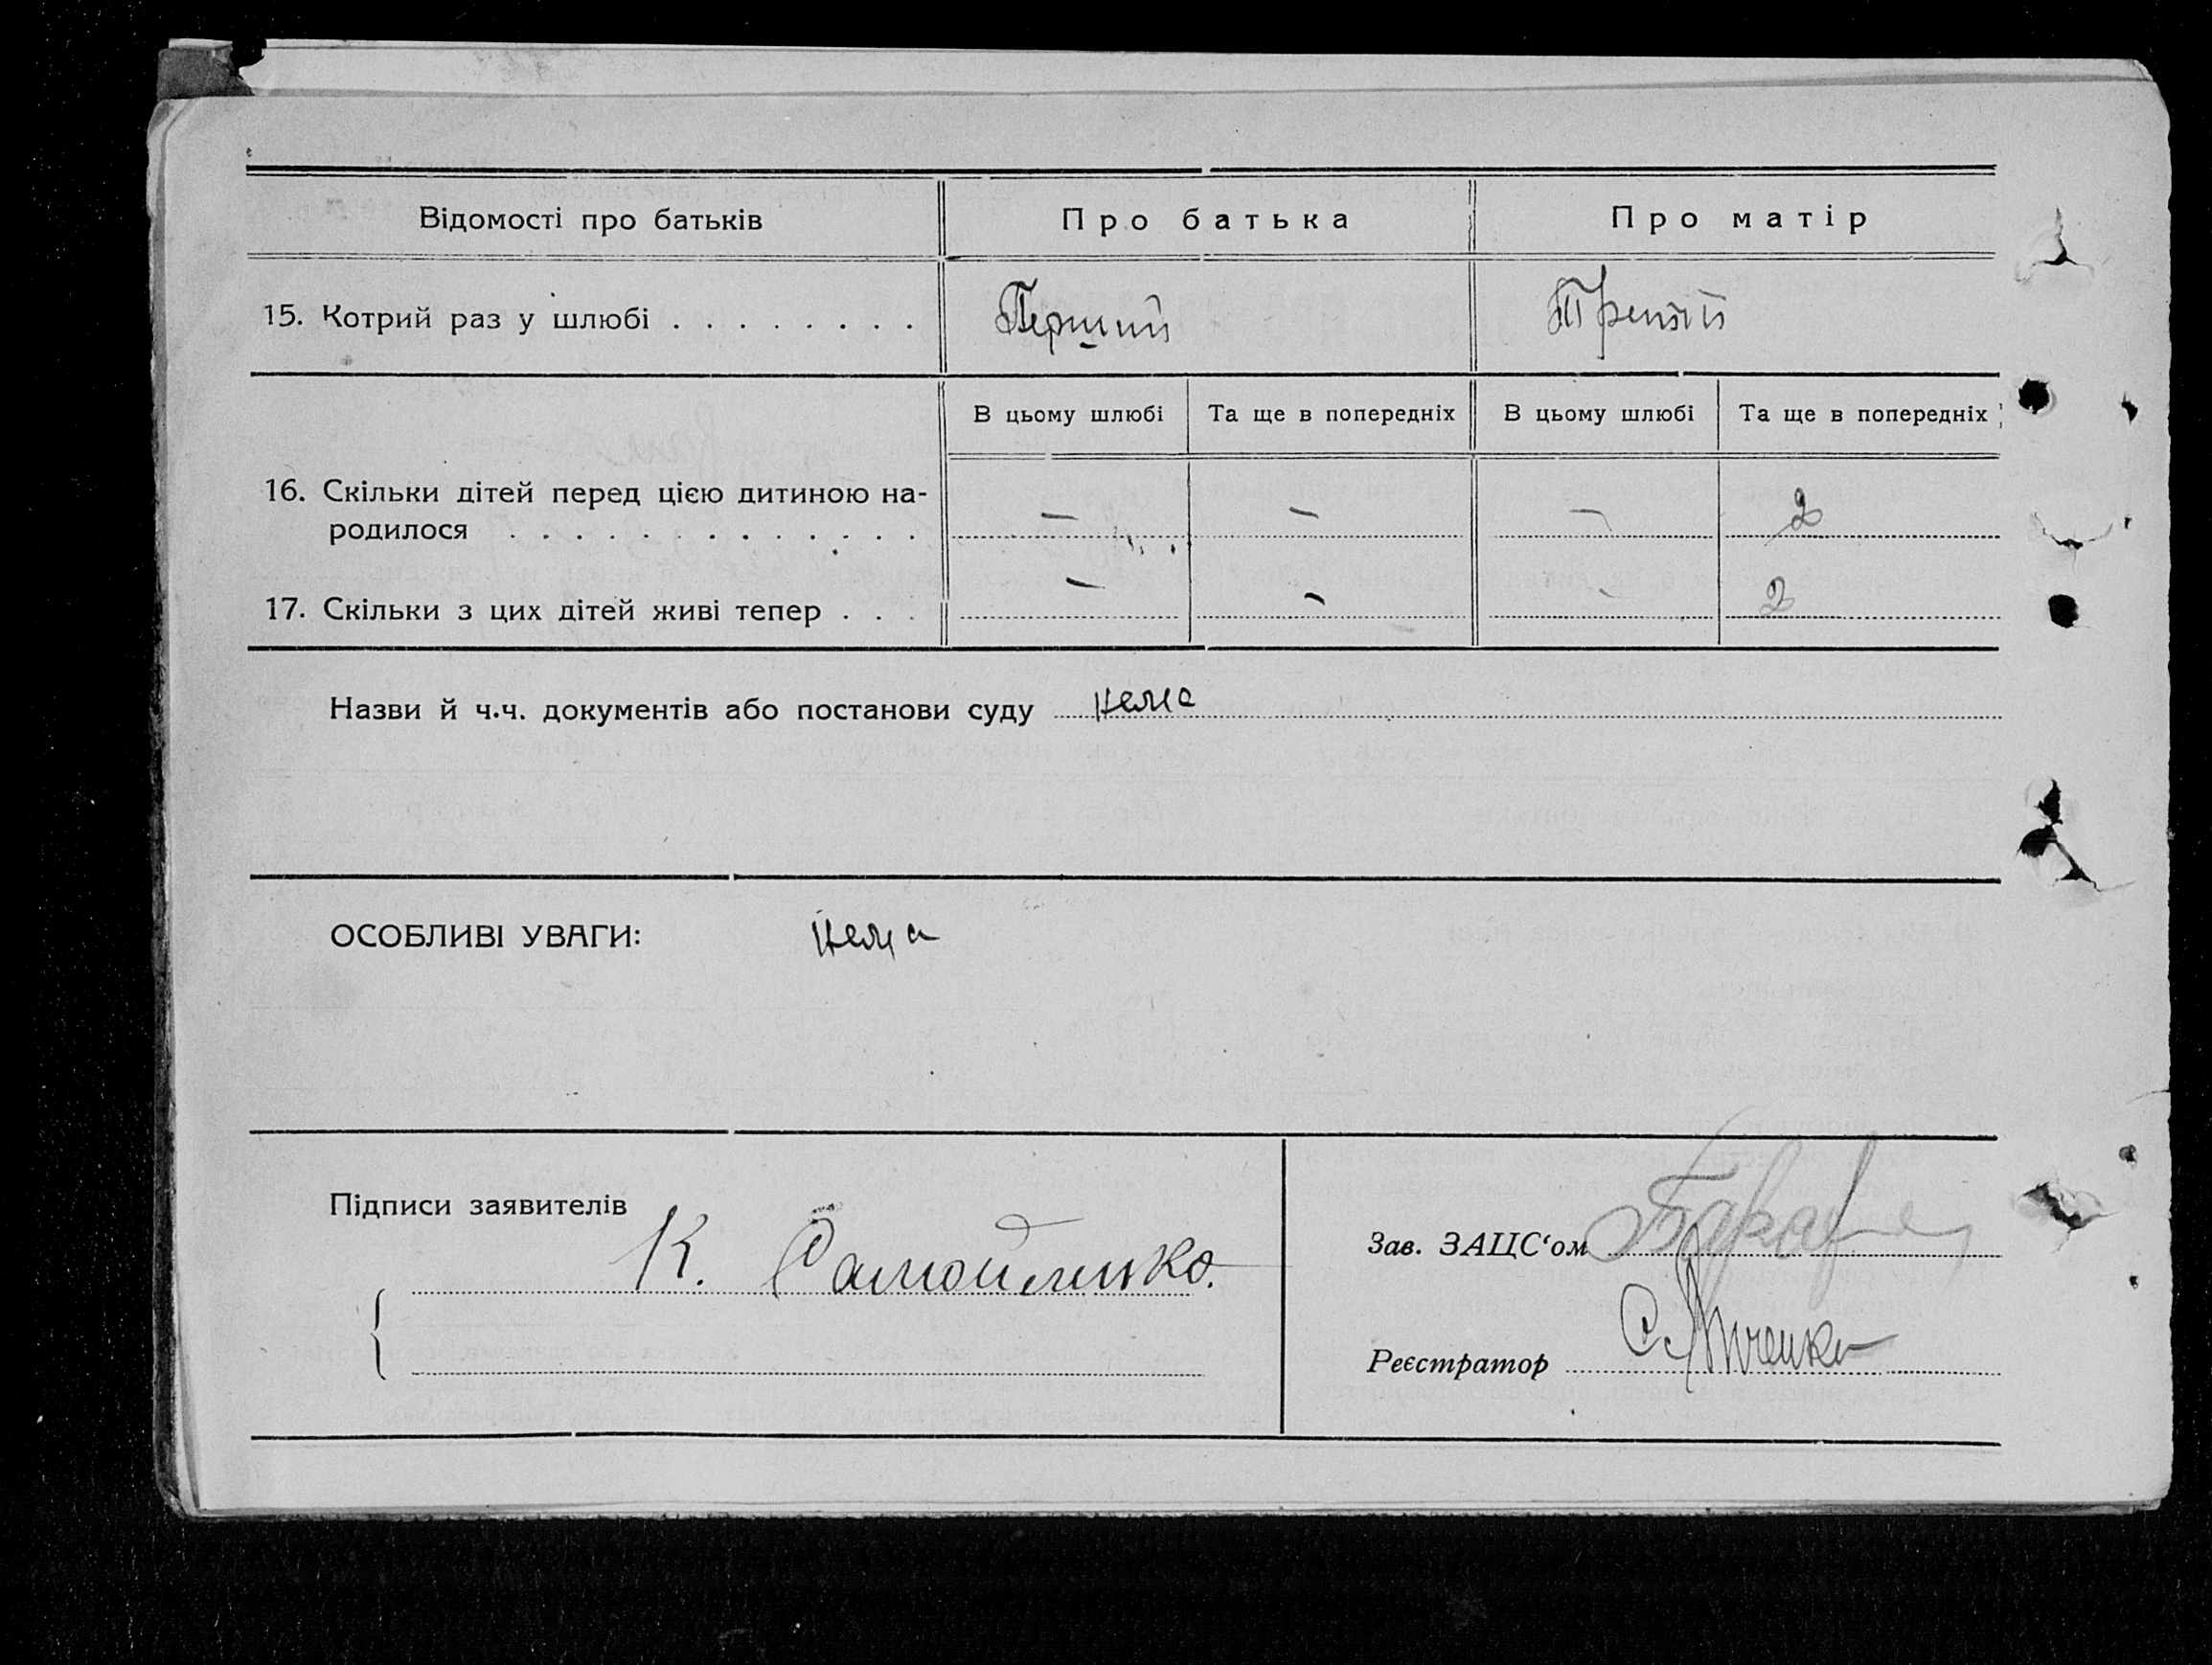 Відомості про батьків
Про батька
Про матір
15. Котрий раз у шлюбі . . . . . . . .
Перший
Третій
В цьому шлюбі
Та ще в попередніх
В цьому шлюбі
Та ще в попередніх
16. Скільки дітей перед цією дитиною на-
родилося . . . . . . . . . . . . .
–
–
–
2
17. Скільки з цих дітей живі тепер . . .
–
–
2
Назви й ч.ч. документів або постанови суду нема
ОСОБЛИВІ УВАГИ: нема
Підписи заявителів
К. Самойленко.
Зав. ЗАЦС‘ом
Реєстратор